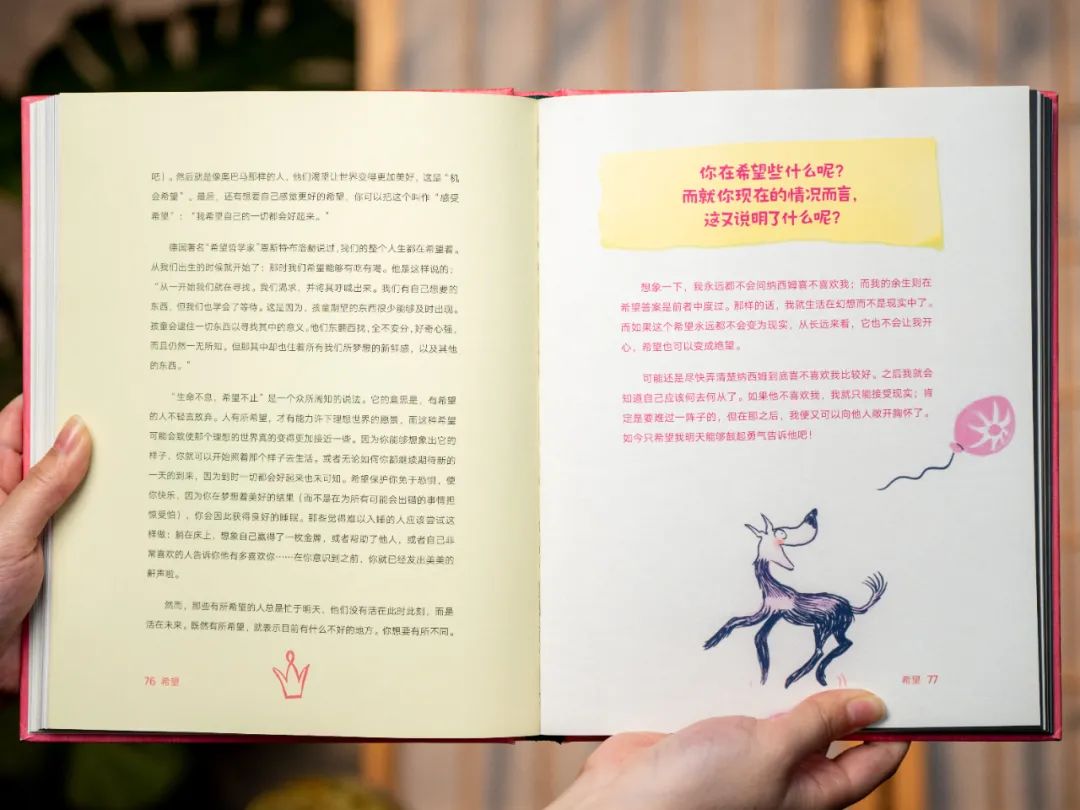 吧）。然后就是像奥巴马那样的人，他们渴望让世界变得更加美好，这是“机
会希望”。最后，还有想要自己感觉更好的希望，你可以把这个叫作“感受
希望”：“我希望自己的一切都会好起来。”
德国著名“希望哲学家”恩斯特·布洛赫说过，我们的整个人生都在希望着。
从我们出生的时候就开始了：那时我们希望能够有吃有喝。他是这样说的：
“从一开始我们就在寻找。我们渴求，并将其呼喊出来。我们有自己想要的
东西，但我们也学会了等待。这是因为，孩童期望的东西很少能够及时出现。
孩童会逮住一切东西以寻找其中的意义。他们东翻西找，全不安分，好奇心强，
而且仍然一无所知。但那其中却也住着所有我们所梦想的新鲜感，以及其他
的东西。”
“生命不息，希望不止”是一个众所周知的说法。它的意思是，有希望
的人不轻言放弃。人有所希望，才有能力许下理想世界的愿景，而这种希望
可能会致使那个理想的世界真的变得更加接近一些。因为你能够想象出它的
样子，你就可以开始照着那个样子去生活。或者无论如何你都继续期待新的
一天的到来，因为到时一切都会好起来也未可知。希望保护你免于恐惧，使
你快乐，因为你在梦想着美好的结果（而不是在为所有可能会出错的事情担
惊受怕），你会因此获得良好的睡眠。那些觉得难以入睡的人应该尝试这
样做：躺在床上，想象自己赢得了一枚金牌，或者帮助了他人，或者自己非
常喜欢的人告诉你他有多喜欢你……在你意识到之前，你就已经发出美美的
鼾声啦。
然而，那些有所希望的人总是忙于明天，他们没有活在此时此刻，而是
活在未来。既然有所希望，就表示目前有什么不好的地方。你想要有所不同。
76 希望
你在希望些什么呢？
而就你现在的情况而言，
这又说明了什么呢？
想象一下，我永远都不会问纳西姆喜不喜欢我；而我的余生则在
希望答案是前者中度过。那样的话，我就生活在幻想而不是现实中了。
而如果这个希望永远都不会变为现实，从长远来看，它也不会让我开
心，希望也可以变成绝望。
可能还是尽快弄清楚纳西姆到底喜不喜欢我比较好。之后我就会
知道自己应该何去何从了。如果他不喜欢我，我就只能接受现实；肯
定是要难过一阵子的，但在那之后，我便又可以向他人敞开胸怀了。
如今只希望我明天能够鼓起勇气告诉他吧！
希望 77